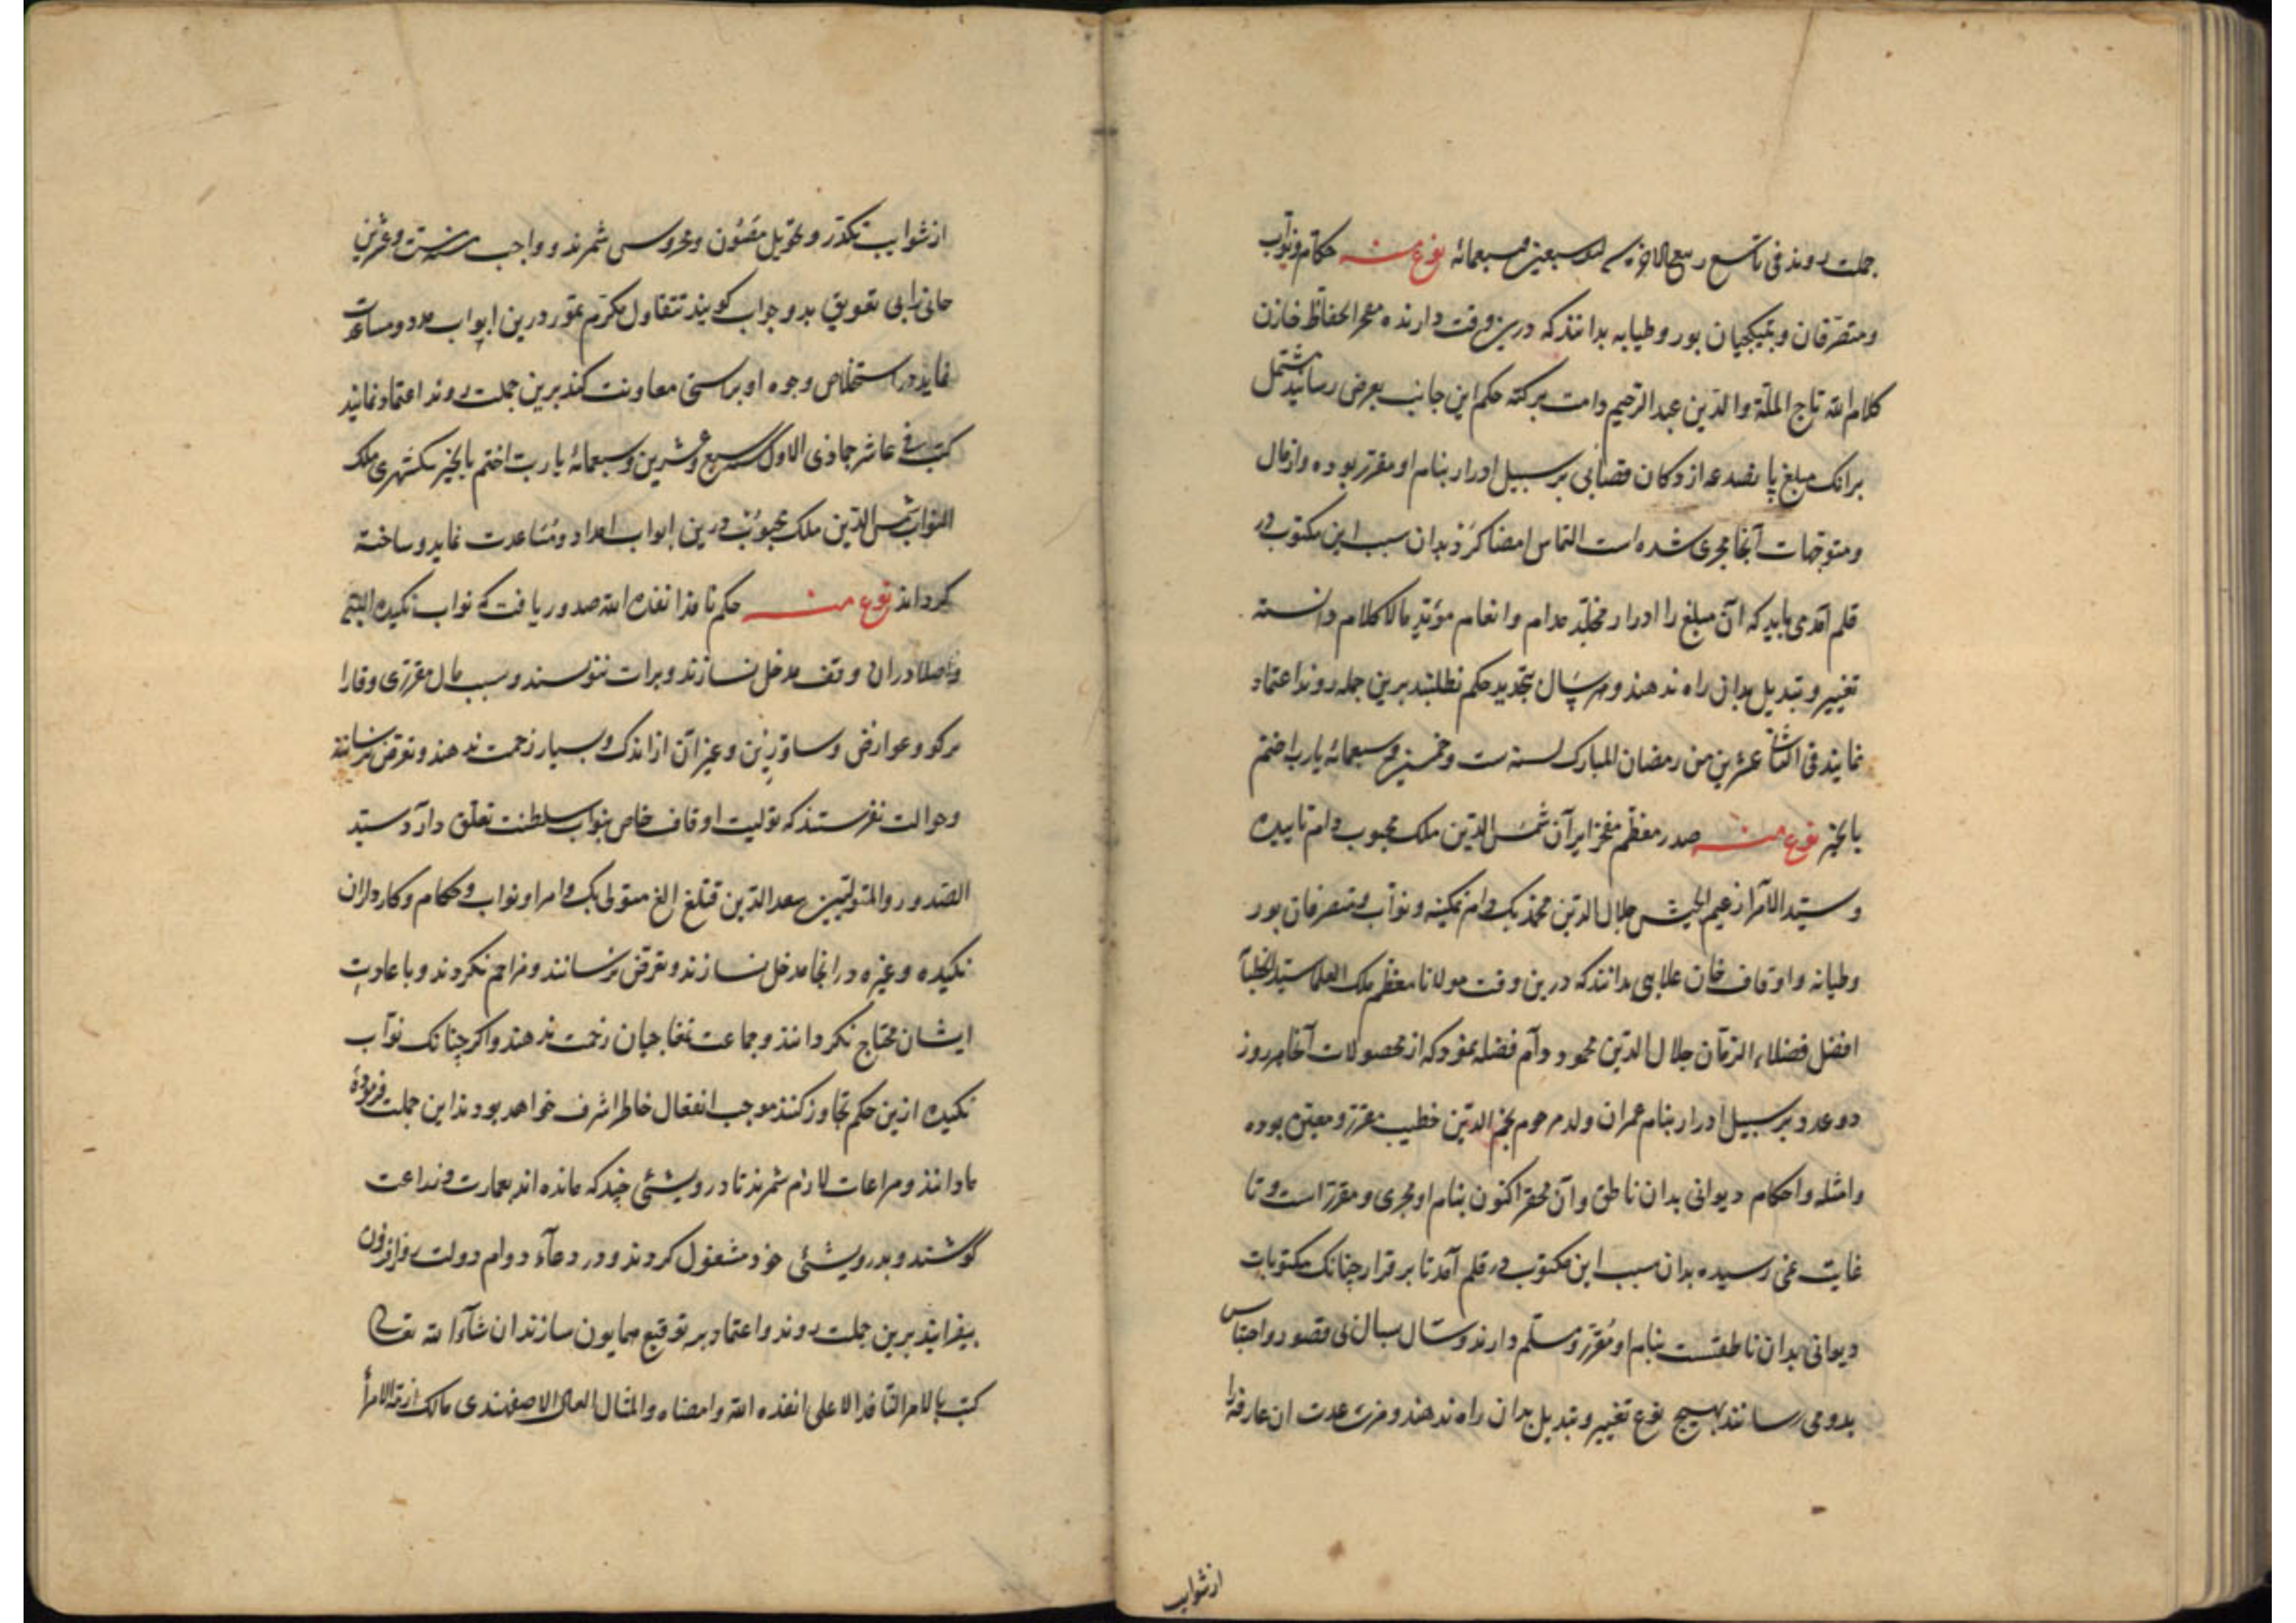 جملت روند فی تاسع ربیع الاخر سنه سبعین و سبعمائه نوع منه حکام و نواب
و متصرفان و بتیکچیان بور و طیابه بدانند که درین وقت دارنده مفخر الحفاظ خازن
کلام الله تاج الملة والدین عبد الرحیم دامت برکته حکم این جانب بعرض رسانید مشتمل
برانک مبلغ پانصد عد از دکان قصابی بر سبیل ادرار بنام او مقرر بوده و از مال
و متوجهات آنجا مجری شده است التماس امضا کرد بدان سبب این مکتوب در
قلم آمد می باید که آن مبلغ را ادرار مخلد مدام و انعام مؤبد مالا کلام دانسته
تغییر و تبدیل بدان راه ندهند و هر سال بتجدید حکم نطلبند برین جمله روند اعتماد
نمایند فی الثانی عشرین من رمضان المبارک لسنه ست و خمسین و سبعمائه یا رب اختم
بالخیر نوع منه صدر معظم مفخر ایران شمس الدین ملک محبوب دام تاییده
و سید الامرا زعیم الجیش جلال الدین محمد بک دام تمکینه و نواب و متصرفان بور
و طیانه و اوقاف خان علایی بدانند که درین وقت مولانا معظم ملک العلما سید الخطبا
افضل فضلاء الزمان جلال الدین محمود دام فضله نمود که از محصولات آنجا هر روز
دو عدد بر سبیل ادرار بنام عمران ولد مرحوم نجم الدین خطیب مقرر و معین بوده
و امثله و احکام دیوانی بدان ناطق و آن محقر اکنون بنام او مجری و مقرر است و تا
غایت نمی رسیده بدان سبب این مکتوب در قلم آمد تا بر قرار چنانک مکتوبات
دیوانی بدان ناطقست بنام او مقرر و مسلم دارند و سال بسال بی قصور و احتباس
بدو می رسانند بهیچ نوع تغییر و تبدیل بدان راه ندهند و مزرعت ان عارفه را
از شوایب
از شوایب تکدر و تحویل مصون و محروس شمرند و واجب سنه ست و عشرین
خانی را بی تعویق بدو جواب کویند تتقاول مکرم تمور درین ابواب مدد و مساعدت
نماید در استخلاص وجوه او براستی معاونت کند برین جملت روند اعتماد نمایند
کتب فی عاشر جماذی الاول سنه سبع و عشرین و سبعمائه یا رب اختم بالخیر نکسهری ملک
النواب شمس الدین ملک محبوب درین ابواب امداد و مساعدت نماید و ساخته
کرداند نوع منه حکم نافذ انفذه الله صدور یافت که نواب نکیده
و اصلا دران وقف مدخل نسازند و برات ننویسند و سبب مال مقرری و قارا
برکو و عوارض و ساورین و غیر آن از اندک و بسیار زحمت ندهند و تعرض نرسانند
و حوالت نفرستند که تولیت اوقاف خاص بنواب سلطنت تعلق دارد سید
الصدور والمتولیین سعد الدین قتلغ الغ متولی بک و امرا و نواب و حکام و کارداران
نکیده و غیره در انجا مدخل نسازند و تعرض نرسانند و مزاحم نکردند و با عادت
ایشان محتاج نکردانند و جماعت تمغاجیان زحمت ندهند و اکر چنانک نواب
نکیده ازین حکم تجاوز کنند موجب انفعال خاطر اشرف خواهد بودند این جملت فرموده
ما دانند و مراعات لازم شمرند تا درویشی چند که مانده اند بعمارت و زراعت
کوشند و بدرویشی خود مشغول کردند و در دعاء دوام دولت روزافزون
بیفزایند برین جملت روند و اعتماد بر توقیع همایون سازند ان شاء الله تعالی
کتب بالامر النافذ الاعلی انفذه الله و امضاه و المثال العالی الاصفهندی مالک ازمة الامرا